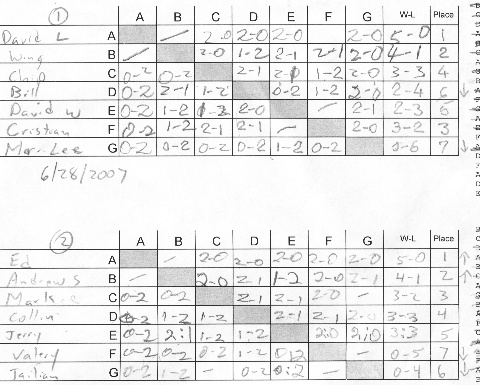 ① A B C D E F G W-L Place
David L A — 2-0 2-0 2-0 2-0 5-0 1
Wing B / 2-0 1-2 2-1 2-1 2-0 4-1 2
Chip C 0-2 0-2 2-1 2-1 1-2 2-0 3-3 4
Bill D 0-2 2-1 1-2 0-2 1-2 2-0 2-4 6 ↓
David W E 0-2 1-2 1-2 2-0 — 2-1 2-3 5
Cristian F 0-2 1-2 2-1 2-1 — 2-0 3-2 3
Mari-Lee G 0-2 0-2 0-2 0-2 1-2 0-2 0-6 7 ↓
6/28/2007
② A B C D E F G W-L Place
Ed A — 2-0 2-0 2-0 2-0 2-0 5-0 1 ↑
Andrew S B — 2-0 2-1 1-2 2-0 2-1 4-1 2 ↑
C 0-2 0-2 2-1 2-1 2-0 — 3-2 3
Collin D 0-2 1-2 1-2 2-1 2-1 2-0 3-3 4
Jerry E 0-2 2:1 1-2 1:2 2:0 2:0 3:3 5
Valery F 0-2 0-2 0-2 1-2 0:2 — 0-5 7 ↓
G 0-2 1-2 — 0-2 0:2 — 0-4 6 ↓